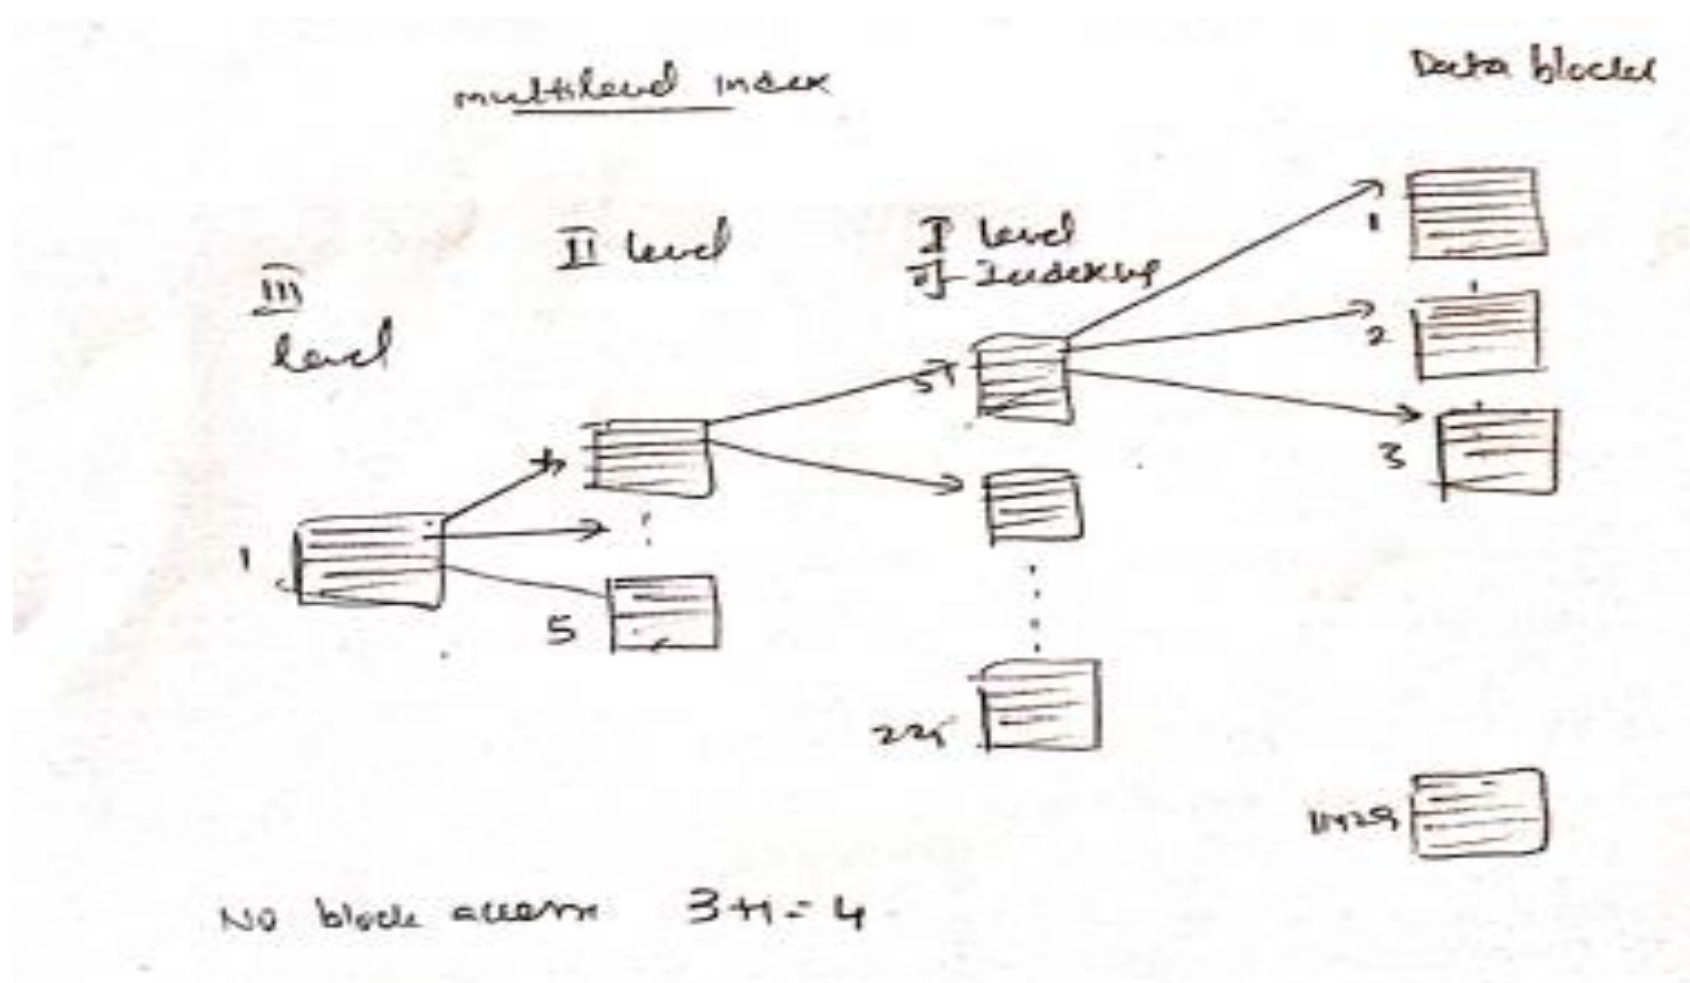 multilevel index
Data blocks
III
level
II level
I level
of Indexing
1
2
3
1
5
225
No block access 3+1=4